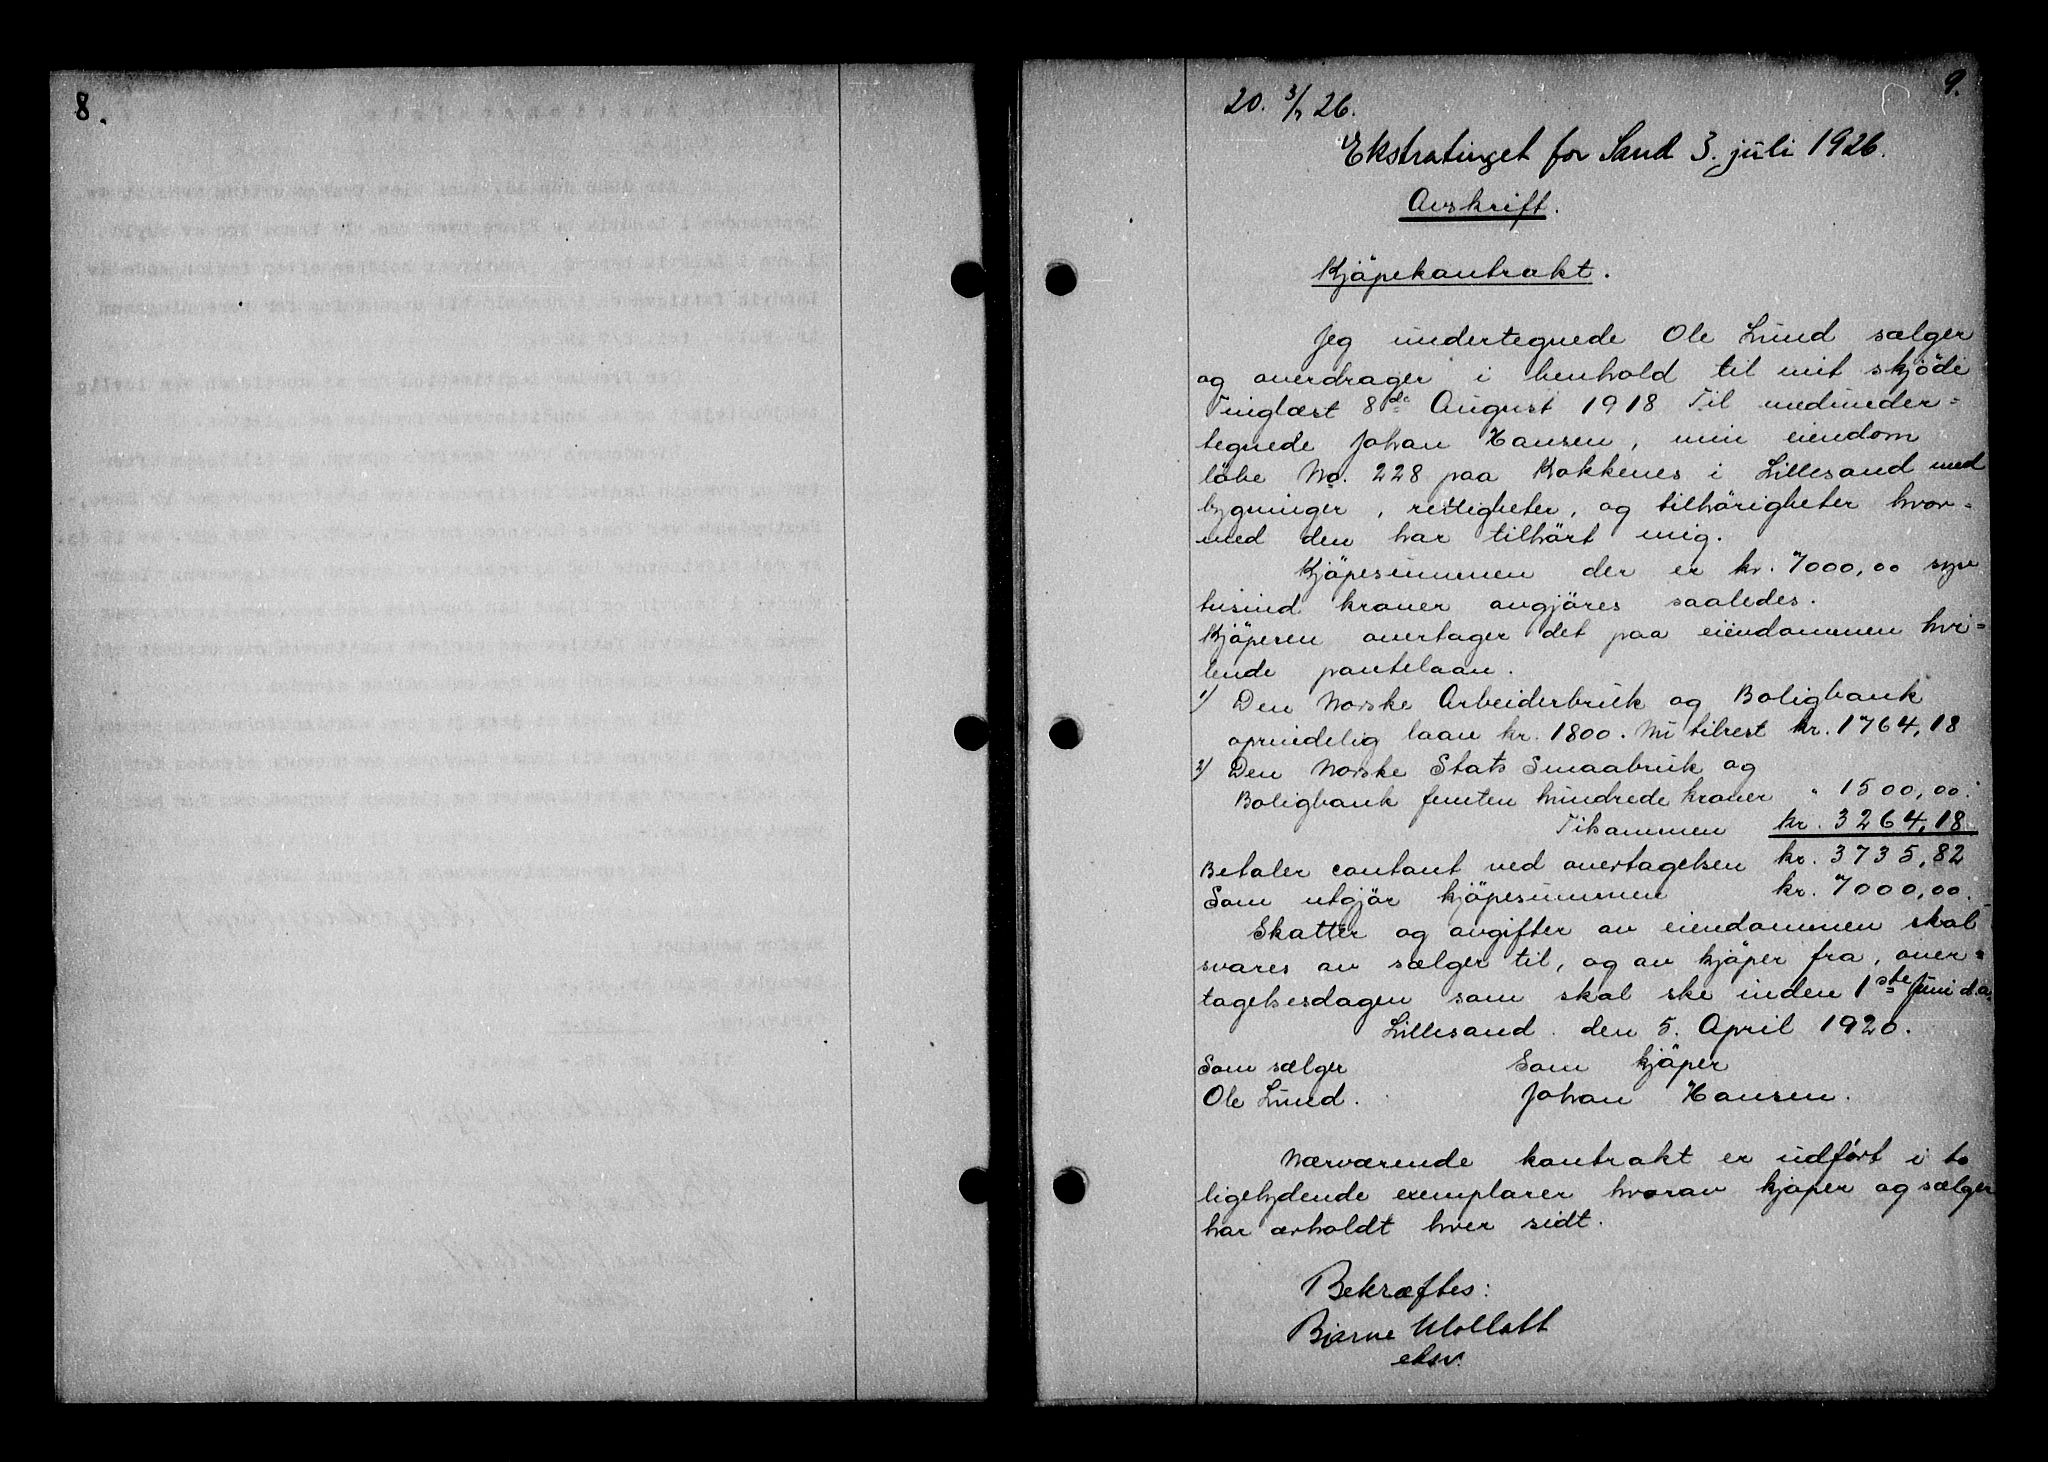 8.
9.
20. 3/7 26.
Ekstratinget for Sand 3. juli 1926.
Avskrift.
Kjöpekontrakt.
Jeg undertegnede Ole Lund sælger
og overdrager i henhold til mit skjöde
Tinglæst 8de August 1918 Til medunder-
tegnede Johan Hansen, min eiendom
löbe No. 228 paa Kokkenes i Lillesand med
bygninger, rettigheter, og tilhörigheter hvor-
med den har tilhört mig.
Kjöpesummen der er kr. 7000,00 syv
tusind kroner avgjöres saaledes.
Kjöperen overtager det paa eiendommen hvi-
lende pantelaan.
1) Den Norske Arbeiderbruk og Boligbank
oprindelig laan kr. 1800. Nu tilrest kr. 1764,18
2) Den Norske Stats Smaabruk og
Boligbank femten hundrede kroner " 1500,00.
Tilsammen kr. 3264,18.
Betaler contant ved overtagelsen kr. 3735,82
Som utgjör kjöpesummen kr. 7000,00.
Skatter og avgifter av eiendommen skal
svares av sælger til, og av kjöper fra, over-
tagelsesdagen som skal ske inden 1ste Juni d.a.
Lillesand den 5. April 1920.
Som sælger Som kjöper
Ole Lund. Johan Hansen.
Nærværende kontrakt er udfört i to
ligelydende exemplarer hvorav kjöper og sælger
har erholdt hver sidt.
Bekræftes:
Bjarne